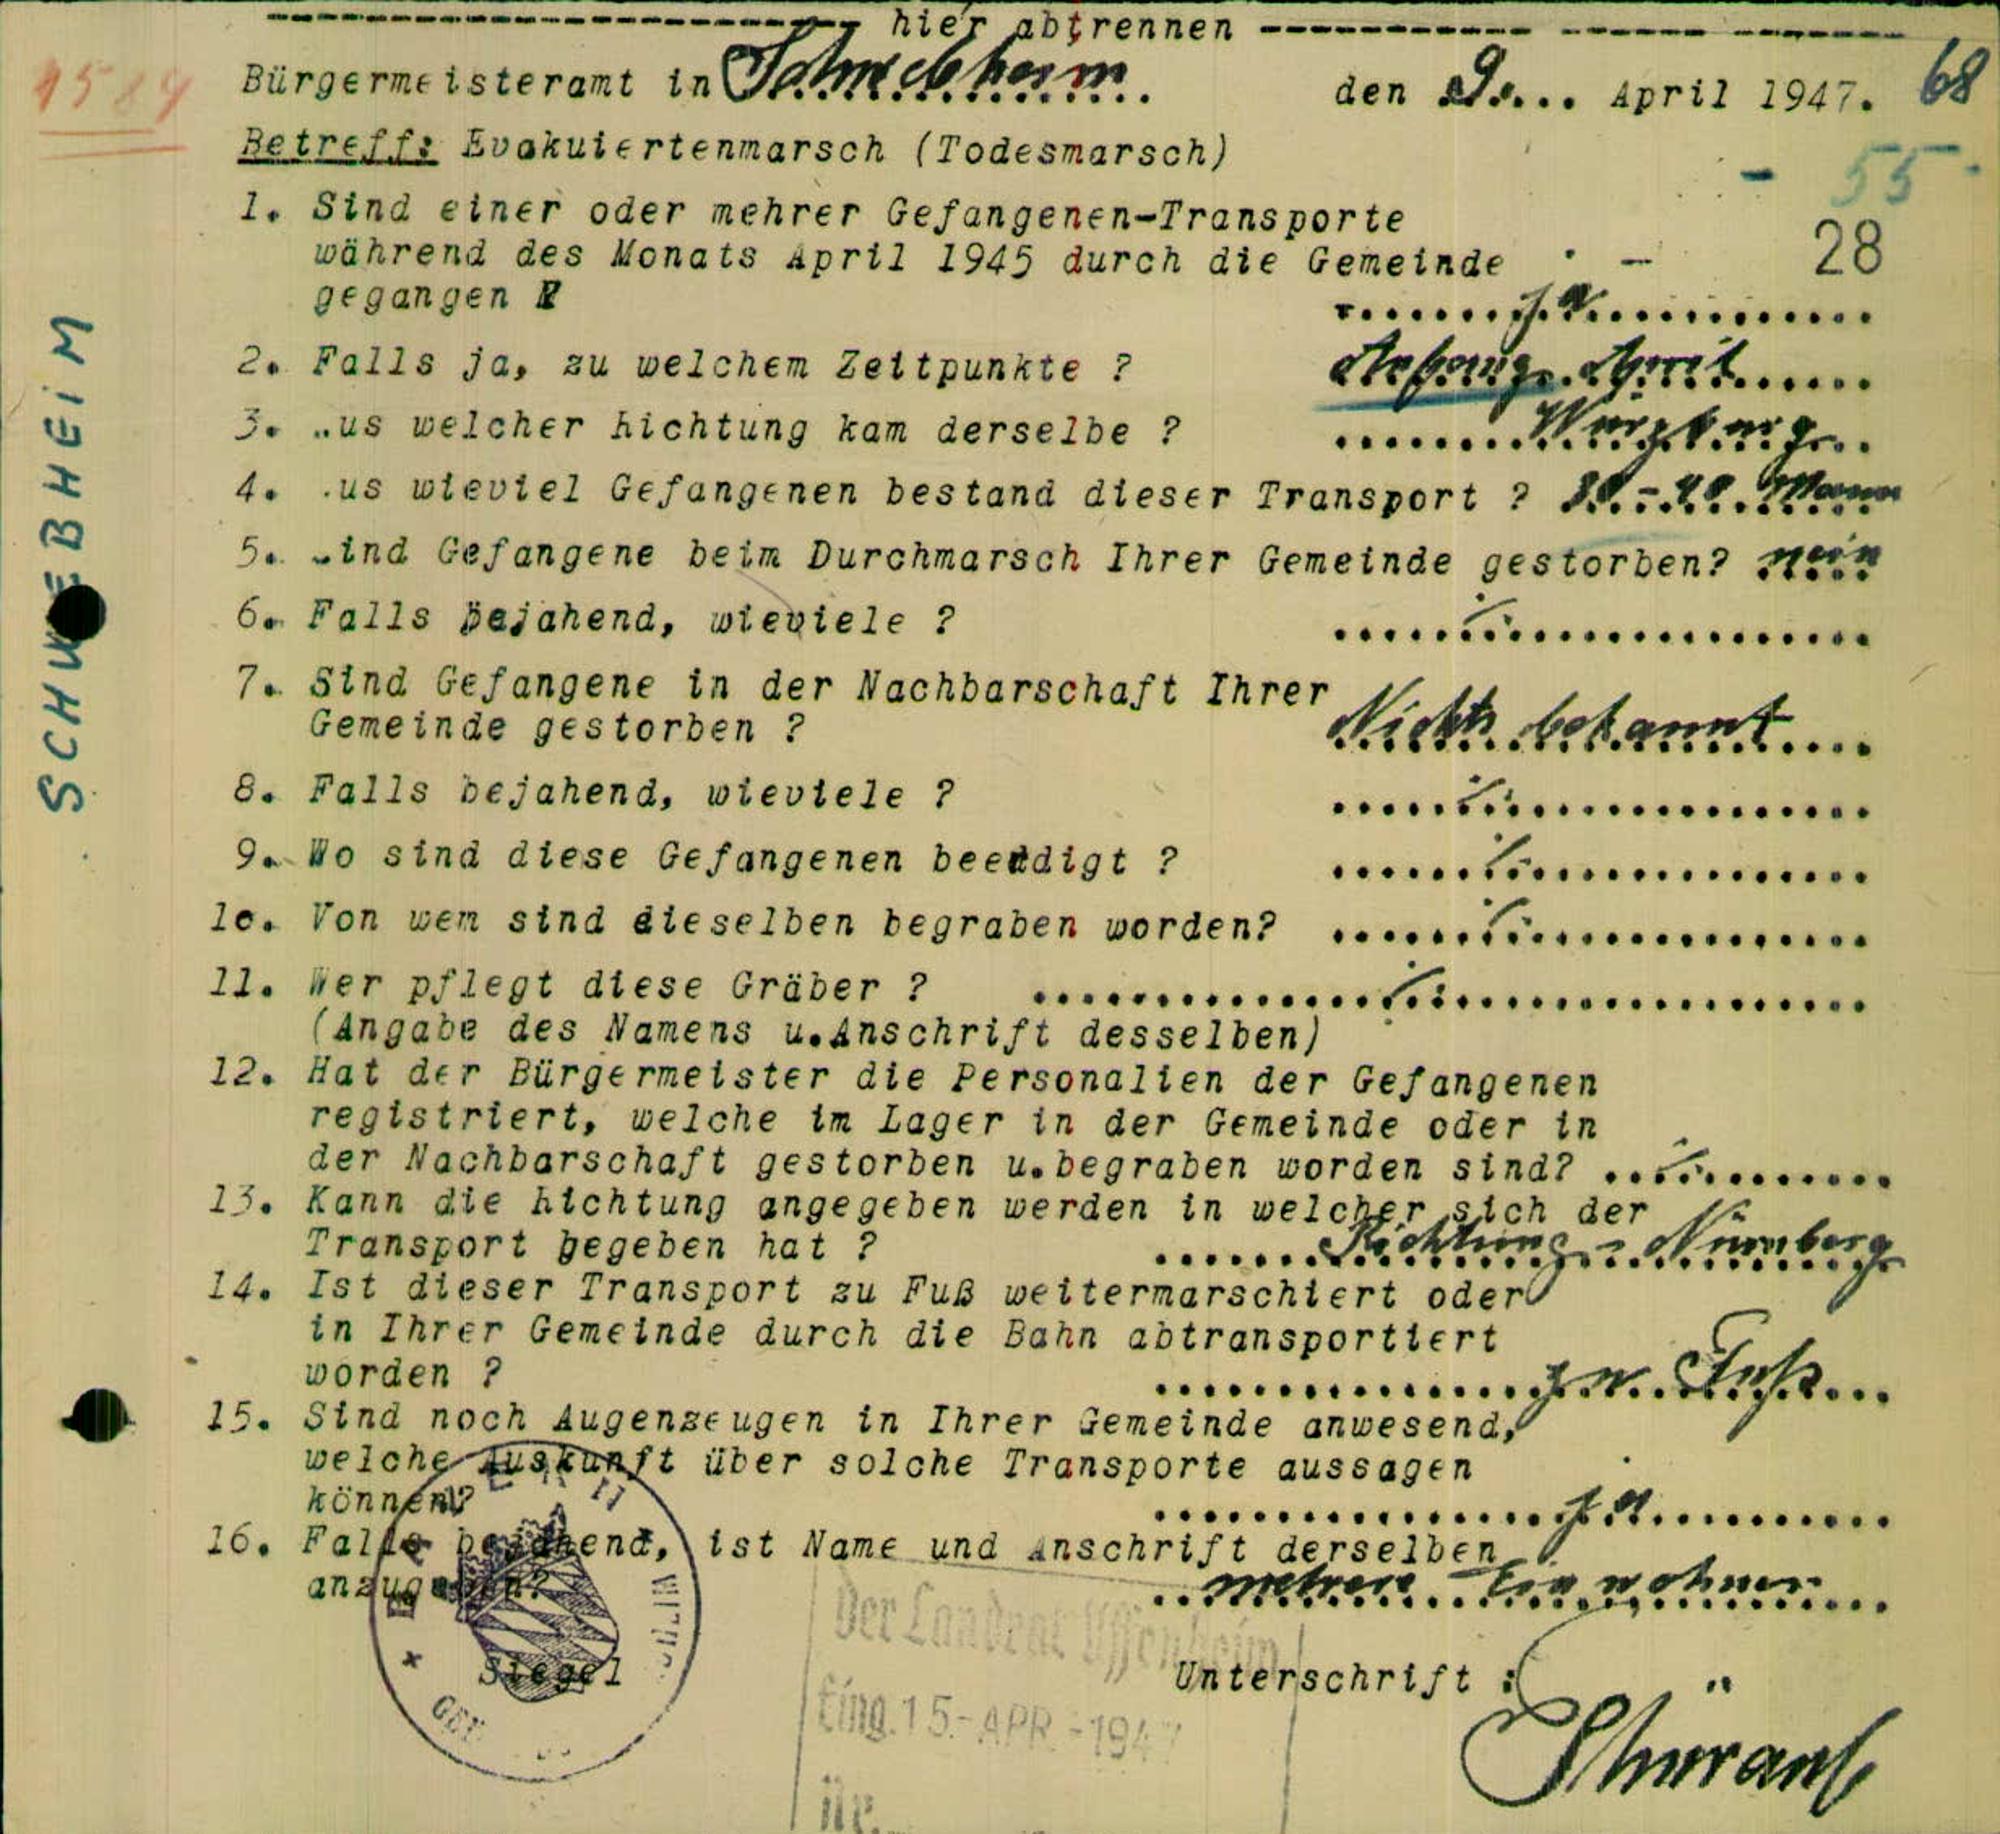 hier abtrennen
1584
Bürgermeisteramt in Schwebheim den 9. April 1947. 68
Betreff: Evakuiertenmarsch (Todesmarsch)
- 55 -
1. Sind einer oder mehrer Gefangenen-Transporte
während des Monats April 1945 durch die Gemeinde
28
gegangen ? ja
2. Falls ja, zu welchem Zeitpunkte ? Anfang April
3. .us welcher Richtung kam derselbe ? Würzburg
4. .us wieviel Gefangenen bestand dieser Transport ? 30 - 40 Mann
5. .ind Gefangene beim Durchmarsch Ihrer Gemeinde gestorben? nein
6. Falls bejahend, wieviele ? ./.
7. Sind Gefangene in der Nachbarschaft Ihrer
Gemeinde gestorben ? Nichts bekannt
8. Falls bejahend, wieviele ? ./.
9. Wo sind diese Gefangenen beerdigt ? ./.
1o. Von wem sind dieselben begraben worden? ./.
11. Wer pflegt diese Gräber ? ./.
(Angabe des Namens u.Anschrift desselben)
12. Hat der Bürgermeister die Personalien der Gefangenen
registriert, welche im Lager in der Gemeinde oder in
der Nachbarschaft gestorben u.begraben worden sind? ./.
13. Kann die Richtung angegeben werden in welcher sich der
Transport begeben hat ? Richtung - Nürnberg
14. Ist dieser Transport zu Fuß weitermarschiert oder
in Ihrer Gemeinde durch die Bahn abtransportiert
worden ? zu Fuß
15. Sind noch Augenzeugen in Ihrer Gemeinde anwesend,
welche Auskunft über solche Transporte aussagen
können? ja
16. Falls bejahend, ist Name und Anschrift derselben
anzugeben? mehrere Einwohner
Der Landrat Uffenheim
Siegel
Unterschrift :
Eing. 15. APR. 1947
Nr.
SCHWEBHEIM